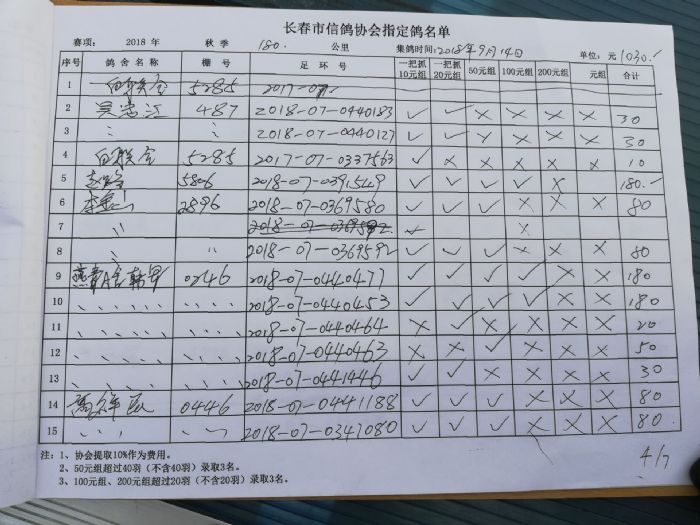 长春市信鸽协会指定鸽名单
赛项: 2018 年 秋 季 180. 公里 集鸽时间:2018年9月14日 单位: 元 1030.
序号 鸽 舍 名 称 棚 号 足 环 号 一把抓10元组 一把抓20元组 50元组 100元组 200元组 元组 合计
1 5285 2017-07
2 吴忠江 487 2018-07-0440183 ✓ ✓ × × × × 30
3 〃 〃 2018-07-0440127 ✓ ✓ × × × × 30
4 5285 2017-07-0337563 ✓ × × × × × 10
5 5806 2018-07-0391549 ✓ ✓ ✓ ✓ × 180.
6 2896 2018-07-0369580 ✓ ✓ ✓ × × × 80
7 〃 2018-07-0369592 ✓ ×
8 〃 〃 2018-07-0369592 ✓ ✓ ✓ × × × 80
9 0246 2018-07-0440477 ✓ ✓ ✓ ✓ × × 180
10 、、、、、 、、、、 2018-07-0440453 ✓ ✓ ✓ ✓ × × 180
11 、、、、、 、、、、 2018-07-0440464 × ✓ × × × × 20
12 、、、、、 、、、、 2018-07-0440463 × × ✓ × × × 50
13 、、、、、 、、、、 2018-07-0441446 ✓ ✓ × × × × 30
14 0446 2018-07-0441188 ✓ ✓ ✓ × × × 80
15 、、、 2018-07-0347080 ✓ ✓ ✓ × × × 80.
注: 1、协会提取10%作为费用。
2、50元组超过40羽(不含40羽)录取3名。
3、100元组、200元组超过20羽(不含20羽)录取3名。
4/7